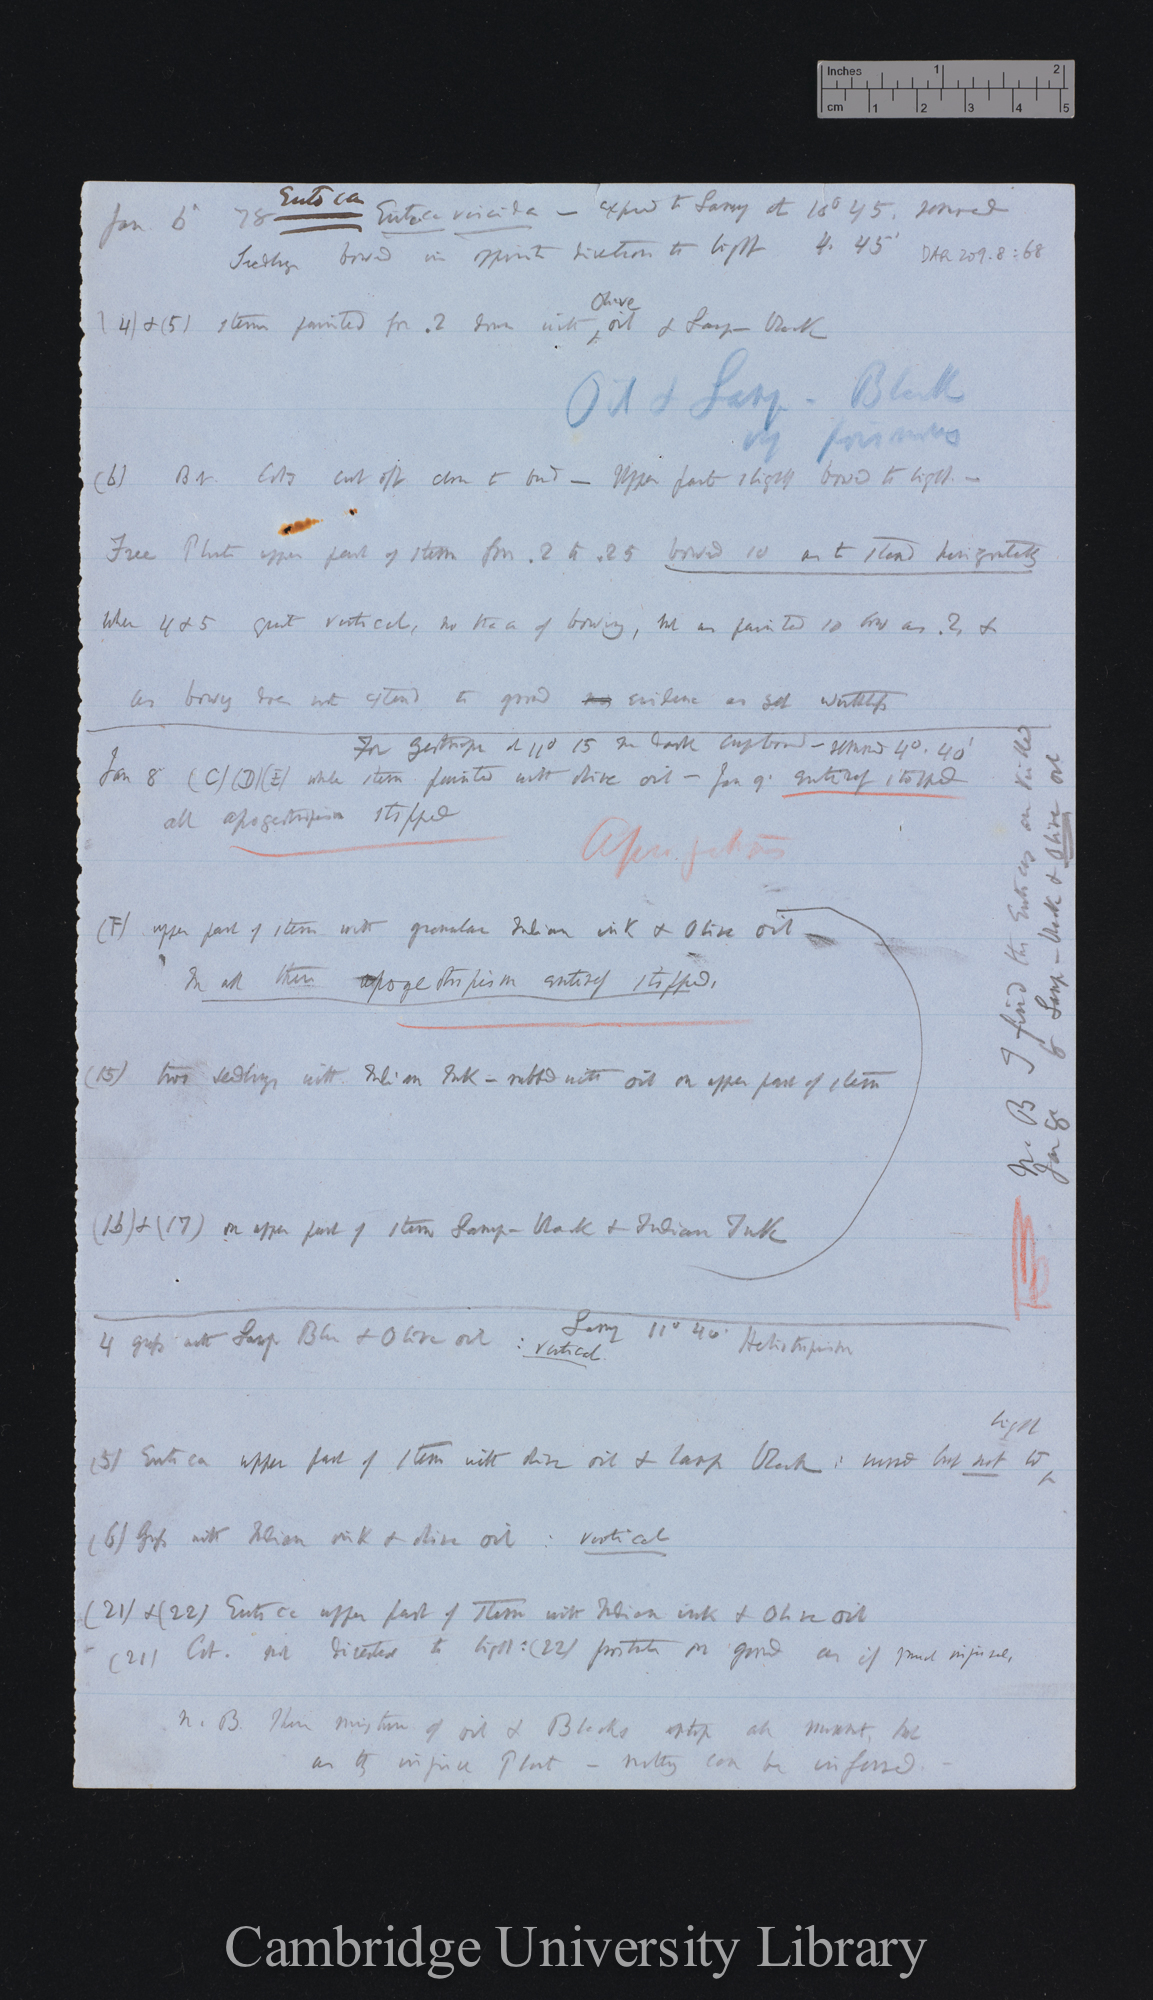 Inches 1 2
cm 1 2 3 4 5
Eutoca
Jan. 6 78 Eutoca viscida — exposed to Lamp at 10° 45. removed
Seedlings bowed in opposite direction to light 4. 45'
DAR 209.8:68
(4) & (5) stems painted for .2 down with Olive oil & Lamp-black
Oil & Lamp-Black
v poisonous
(6) Cots cut off close to bud — Upper part slightly bowed to light. —
Free Plants upper part of stem for .2 to .25 bowed so as to stand horizontally
when 4 & 5 quite vertical, no trace of bowing, but as painted so low as .2, &
as bowing does not extend to ground evidence as yet worthless
For Geotropism at 11° 15 in dark cupboard — removed 4°. 40'
Jan 8 (C) (D) (E) whole stem painted with olive oil — Jan 9. entirely stopped
all apogeotropism stopped
Apogeotropism
(F) upper part of stem with granular Indian ink & Olive oil —
In all these apogeotropism entirely stopped.
(15) two seedlings with Indian Ink — rubbed with oil on upper part of stem
(16) & (17) on upper part of stem Lamp-black & Indian Ink
N. B I find the Eutocas are killed
Jan 8 by Lamp-black & Olive oil
4 grass with Lamp Bla & Olive oil : vertical. Lamp 11° 40' Heliotropism
(5) Eutoca upper part of stem with olive oil & lamp black : curved but not to light
(6) Grass with Indian ink & olive oil : vertical
(21) & (22) Eutoca upper part of stem with Indian ink & Olive oil
(21) Cot. not directed to light: (22) prostrate on ground as if much injured.
N. B. These mixture of oil & Blacks stop all movement, but
as they injure Plant — nothing can be inferred. —
Cambridge University Library